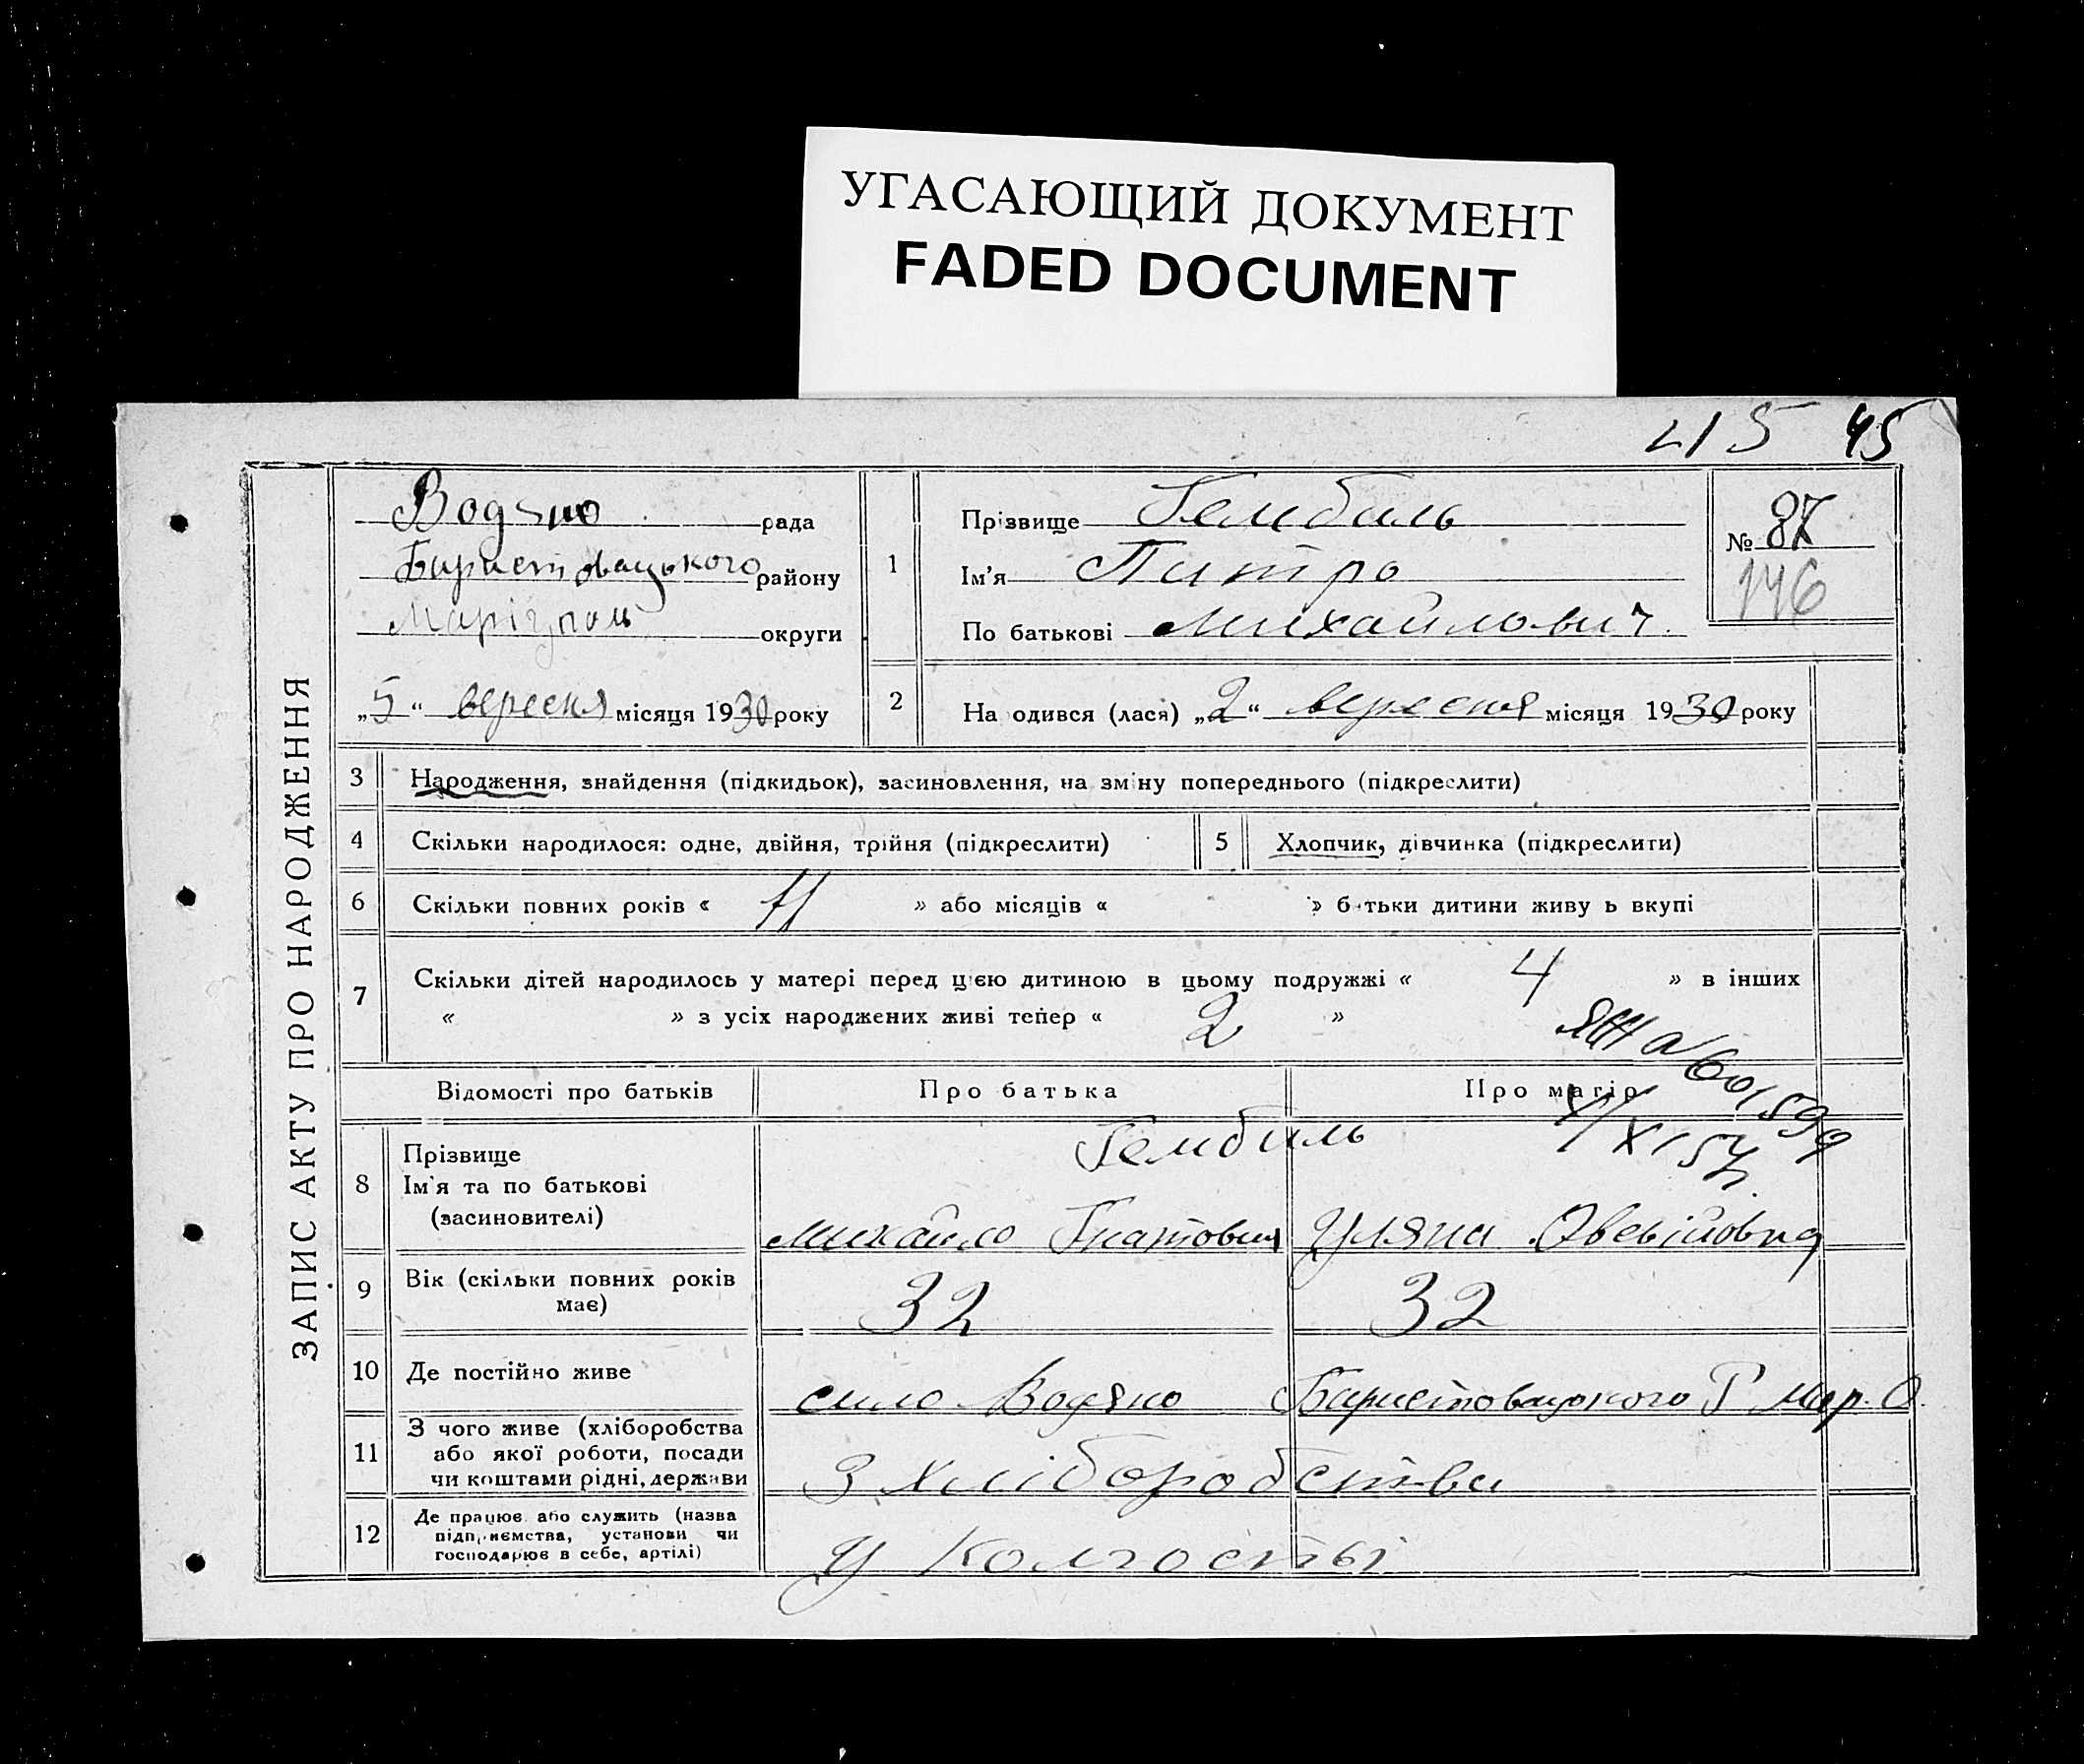 УГАСАЮЩИЙ ДОКУМЕНТ
FADED DOCUMENT
215 45
ЗАПИС АКТУ ПРО НАРОДЖЕННЯ
Водяно рада
району
Маріуполь округи
„5“ вересня місяця 1930 року
1
Прізвище Гембиль
Ім'я Питро
По батькові Михайлович
№ 87
146
2
На одився (лася) „2“ вересня місяця 1930 року
3 Народження, знайдення (підкидьок), засиновлення, на зміну попереднього (підкреслити)
4 Скільки народилося: одне, двійня, трійня (підкреслити)
5 Хлопчик, дівчинка (підкреслити)
6 Скільки повних років « 11 » або місяців « » б тьки дитини живу ь вкупі
7 Скільки дітей народилось у матері перед цією дитиною в цьому подружжі « 4 » в інших
« » з усіх народжених живі тепер « 2 »
Відомості про батьків
Про батька
Про матір
8 Прізвище
Ім'я та по батькові
(засиновителі)
Гембиль
Михайло Гнатович Уляна
9 Вік (скільки повних років
має)
32 32
10 Де постійно живе
сило Водяно Р Мар. О.
11 З чого живе (хліборобства
або якої роботи, посади
чи коштами рідні, держави
З хліборобства
12 Де працює або служить (назва
підприємства, установи чи
господарює в себе, артілі)
у Колгосты